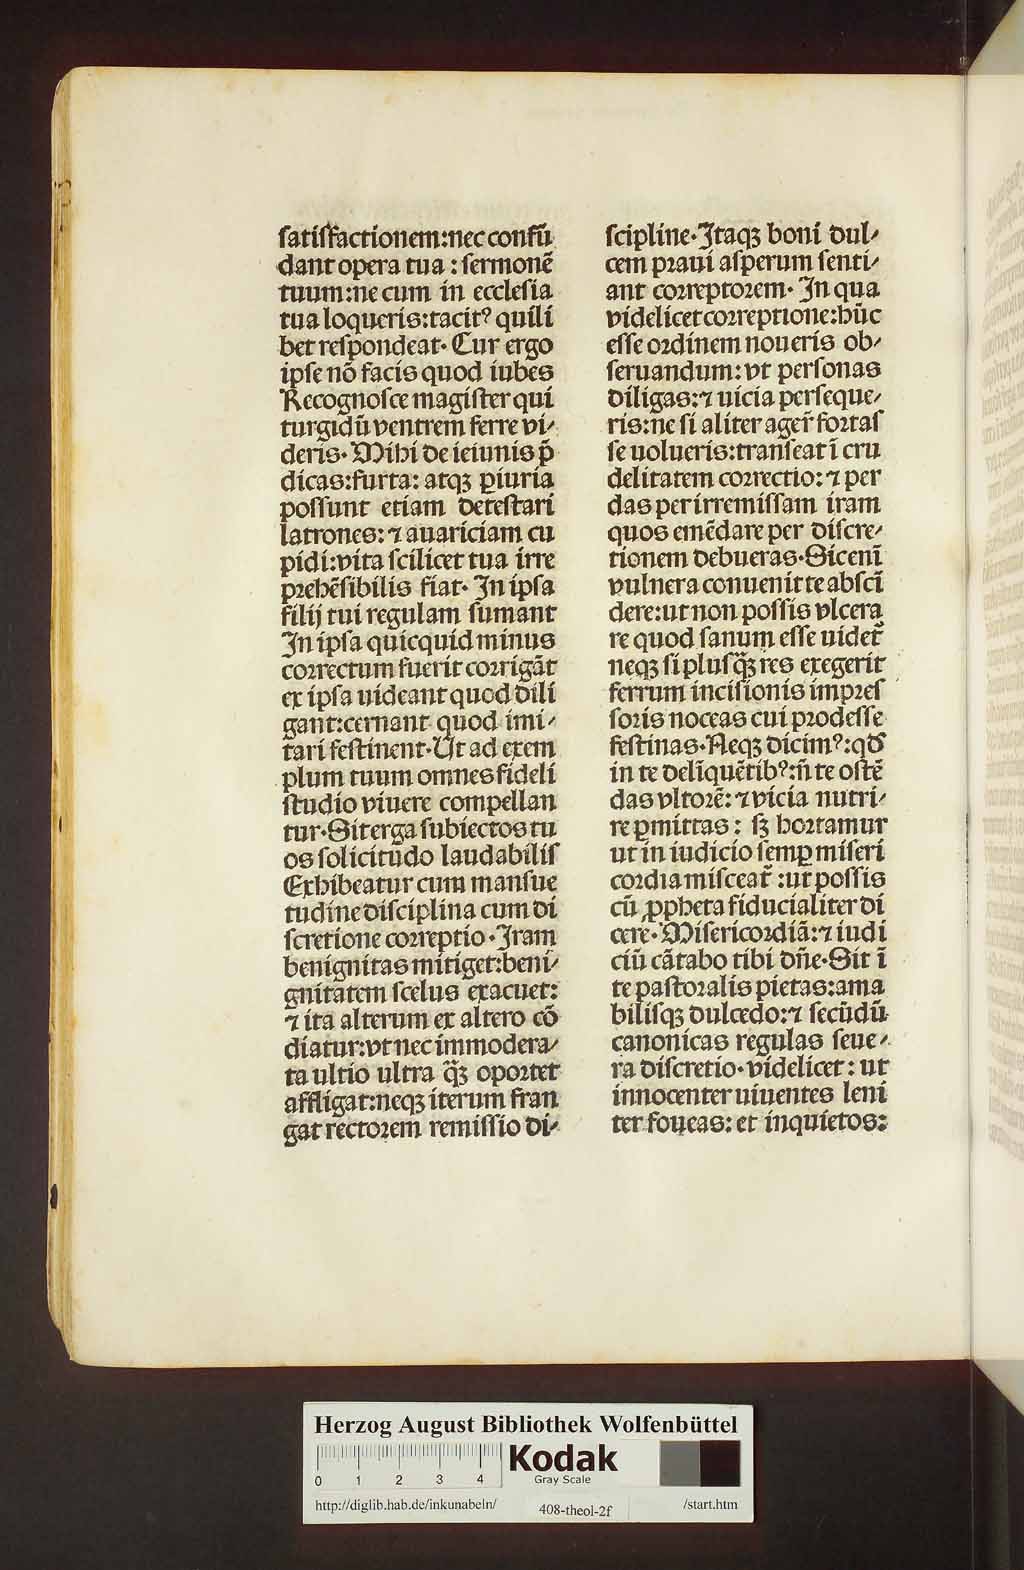 satisfactionem:nec confū
dant opera tua : sermonē
tuum:ne cum in ecclesia
tua loqueris:tacitꝰ quili
bet respondeat· Cur ergo
ipse nō facis quod iubes
Recognosce magister qui
turgidū ventrem ferre vi⸗
deris· Mihi de ieiunis p̄
dicas:furta: atqꝫ ꝑiuria
possunt etiam detestari
latrones: ⁊ auariciam cu
pidi:vita scilicet tua irre
prehēsibilis fiat· In ipsa
filij tui regulam sumant
In ipsa quicquid minus
correctum fuerit corrigāt
ex ipsa uideant quod dili
gant:cernant quod imi⸗
tari festinent·Ut ad exem
plum tuum omnes fideli
studio viuere compellan
tur·Sit erga subiectos tu
os solicitudo laudabilis
Exhibeatur cum mansue
tudine disciplina cum di
scretione correptio·Iram
benignitas mitiget:beni⸗
gnitatem scelus exacuet:
⁊ ita alterum ex altero cō
diatur:vt nec immodera⸗
ta ultio ultra q̄ꝫ oportet
affligat:neqꝫ iterum fran
gat rectorem remissio di⸗
scipline·Itaqꝫ boni dul⸗
cem praui asperum senti⸗
ant correptorem· In qua
videlicet correptione:hūc
esse ordinem noueris ob⸗
seruandum: vt personas
diligas:⁊ uicia perseque⸗
ris:ne si aliter ager̄ fortas
se uolueris:transeat ī cru
delitatem correctio: ⁊ per
das per irremissam iram
quos emēdare per discre⸗
tionem debueras·Sic enī
vulnera conuenit te abscī
dere:ut non possis vlcera
re quod sanum esse uidet᷑
neqꝫ si plusq̄ꝫ res exegerit
ferrum incisionis impres
soris noceas cui prodesse
festinas·Neqꝫ dicimꝰ:qđ
in te delīquētibꝰ:n̄ te ostē
das vltorē: ⁊ vicia nutri⸗
re ꝑmittas: sꝫ hortamur
ut in iudicio semꝑ miseri
cordia misceat᷑ :ut possis
cū ꝓpheta fiducialiter di
cere· Misericordiā:⁊ iudi
ciū cātabo tibi dn̄e·Sit ī
te pastoralis pietas:ama
bilisqꝫ dulcedo:⁊ secūdū
canonicas regulas seue⸗
ra discretio·videlicet: ut
innocenter uiuentes leni
ter foueas: et inquietos:
Herzog August Bibliothek Wolfenbüttel
0 1 2 3 4
Kodak
Gray Scale
http://diglib.hab.de/inkunabeln/
408-theol-2f
/start.htm